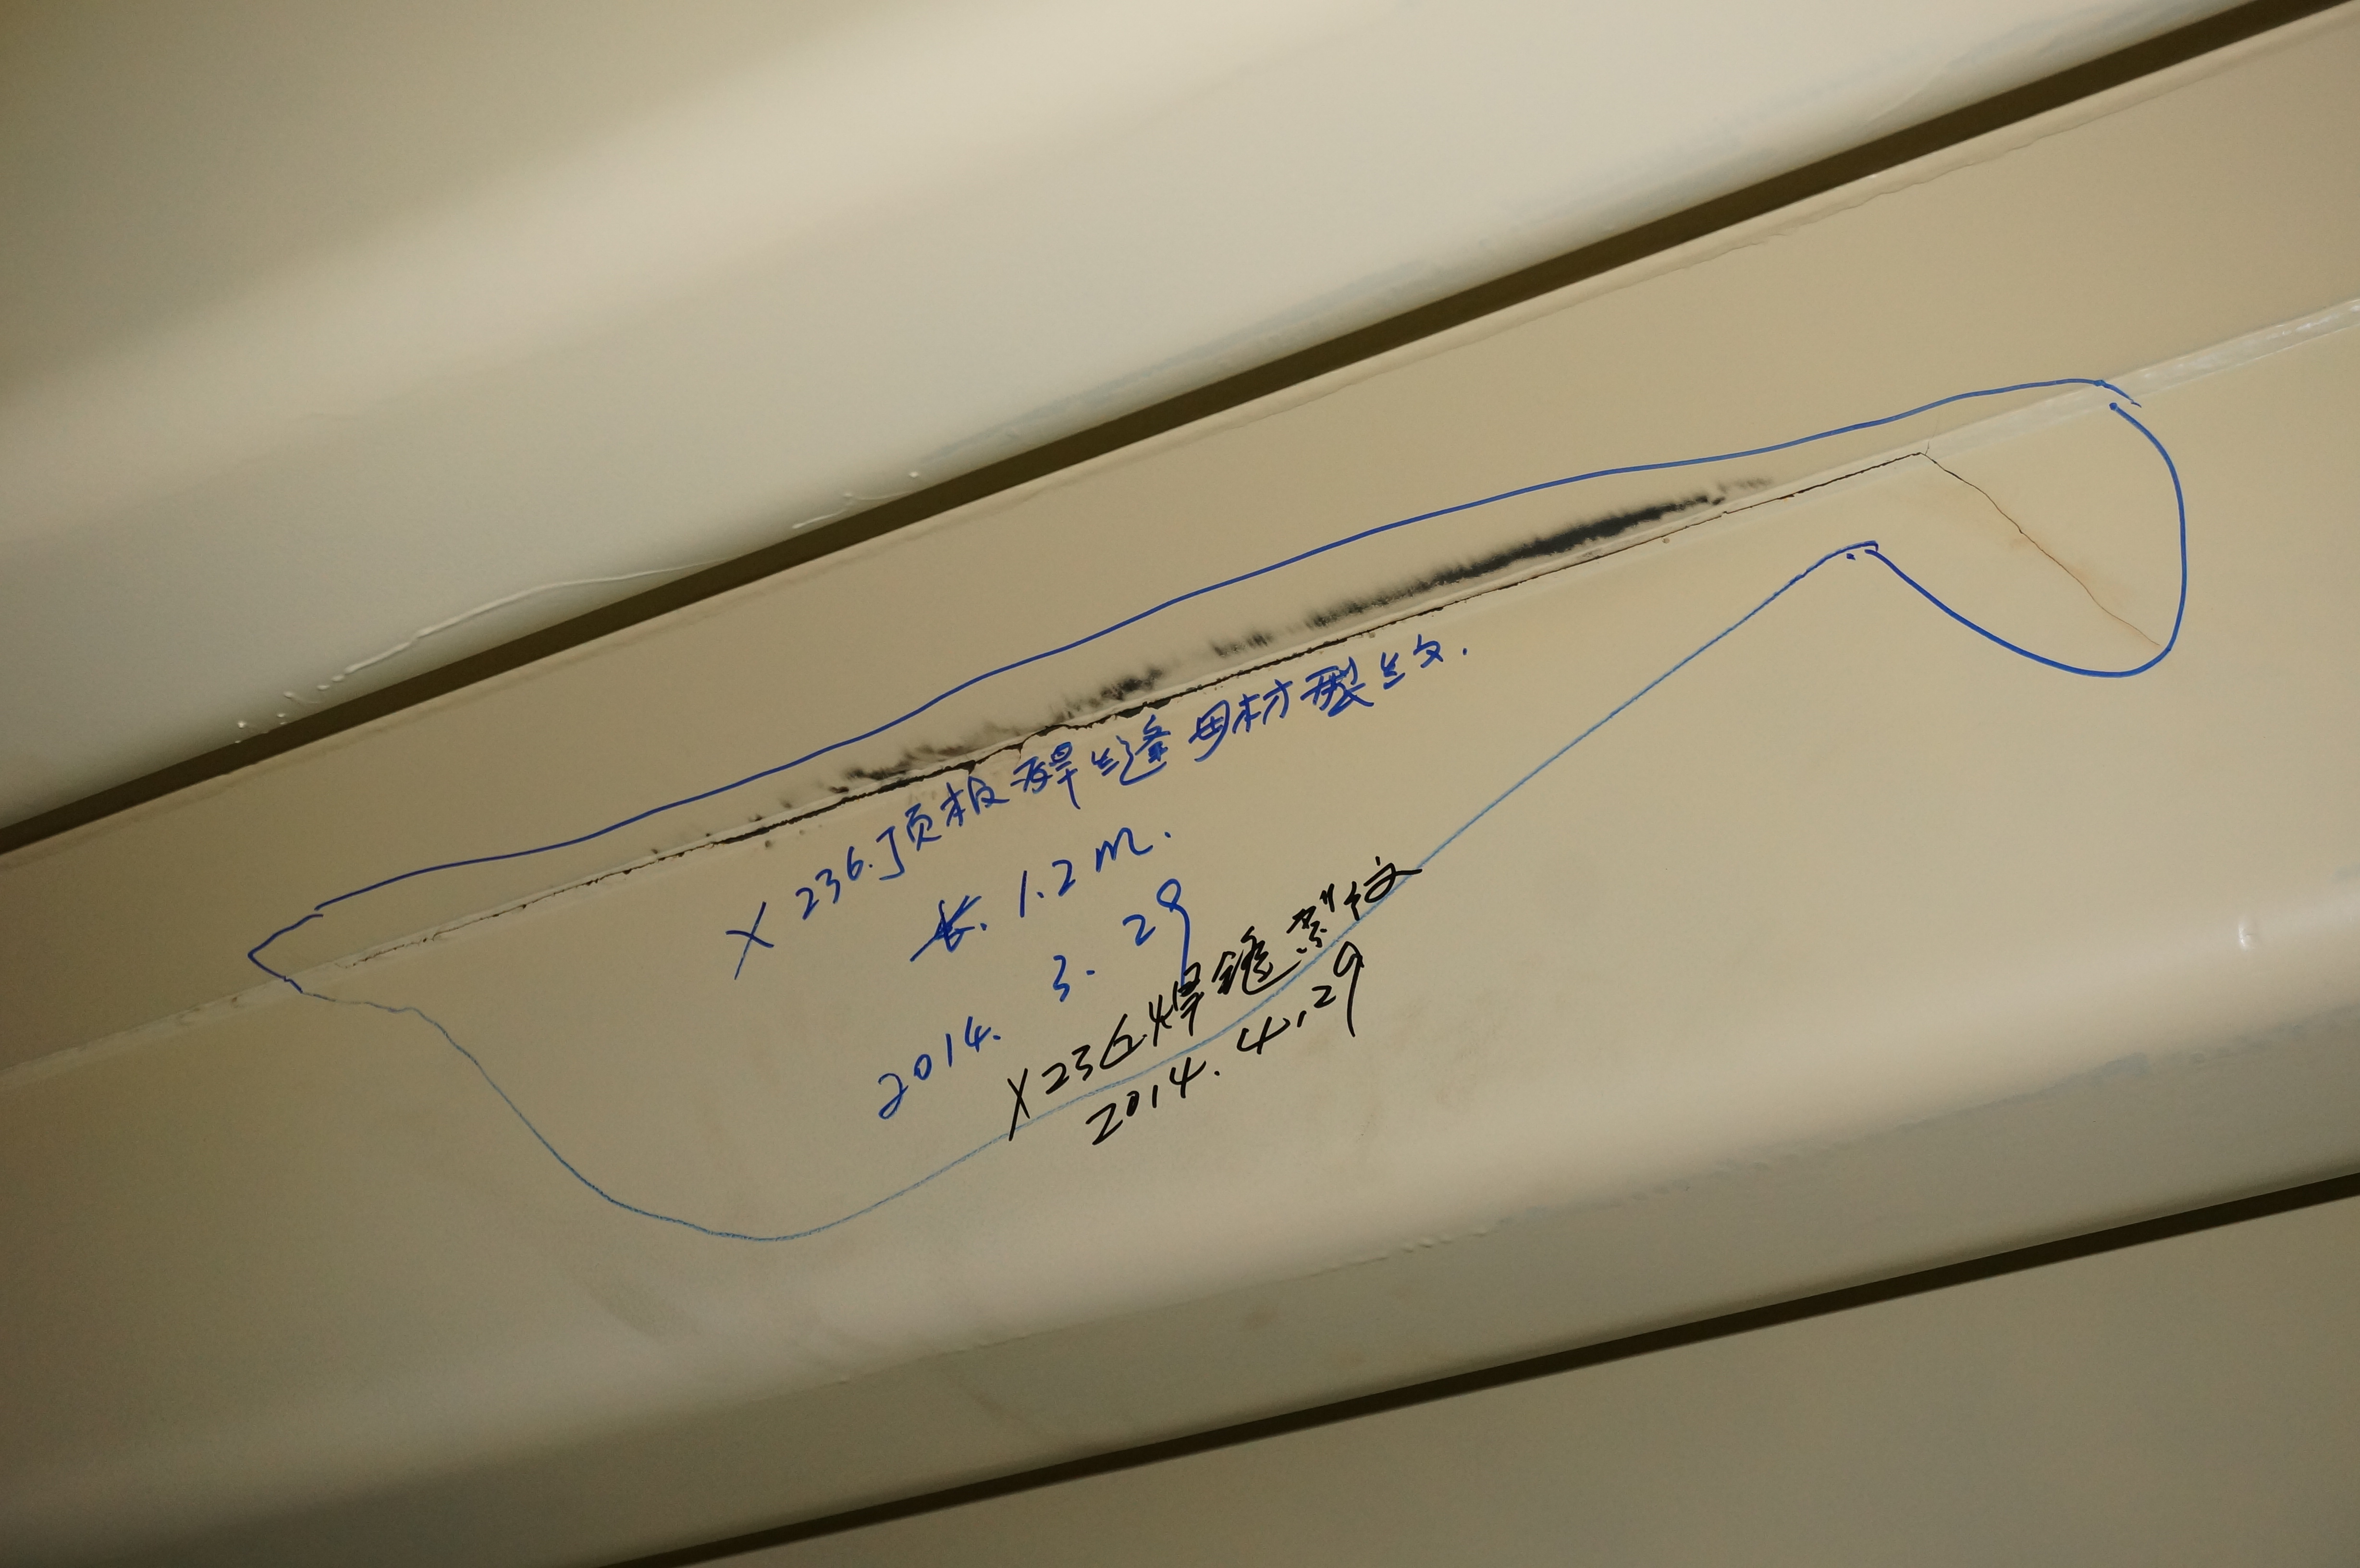 X 236.顶板焊缝母材裂纹.
长.1.2m.
2014. 3. 29
X236焊缝裂纹
2014.4.29